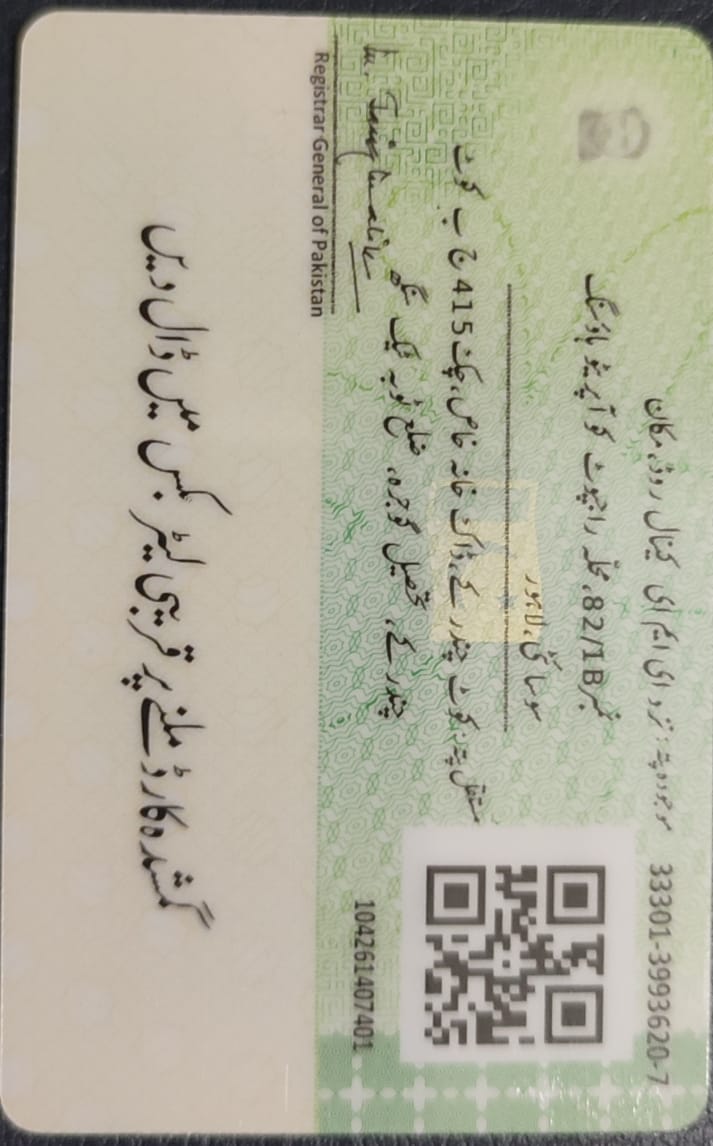 33301-3993620-7
موجودہ پتہ: نزد ای ایم ای کینال روڈ، مکان
نمبر 82/1B، محلہ راجپوت کوآپریٹو ہاؤسنگ
سوسائٹی، لاہور
مستقل پتہ: کوٹ چندر کے، ڈاک خانہ خاص، چک 415 ج ب کوٹ
چندر کے، تحصیل گوجرہ، ضلع ٹوبہ ٹیک سنگھ
104261407401
Registrar General of Pakistan
گمشدہ کارڈ ملنے پر قریبی لیٹر بکس میں ڈال دیں